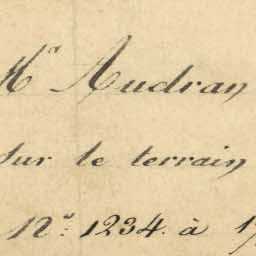 Mr Audran
sur le terrain
No. 1234. à 1